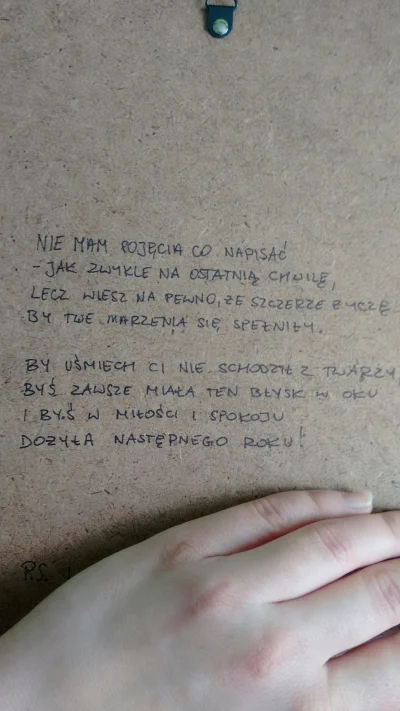 NIE MAM POJĘCIA CO NAPISAĆ
- JAK ZWYKLE NA OSTATNIĄ CHWILĘ,
LECZ WIESZ NA PEWNO, ŻE SZCZERZE ŻYCZĘ
BY TWE MARZENIA SIĘ SPEŁNIŁY.
BY UŚMIECH CI NIE SCHODZIŁ Z TWARZY
BYŚ ZAWSZE MIAŁA TEN BŁYSK W OKU
I BYŚ W MIŁOŚCI I SPOKOJU
DOŻYŁA NASTĘPNEGO ROKU!
P.S.